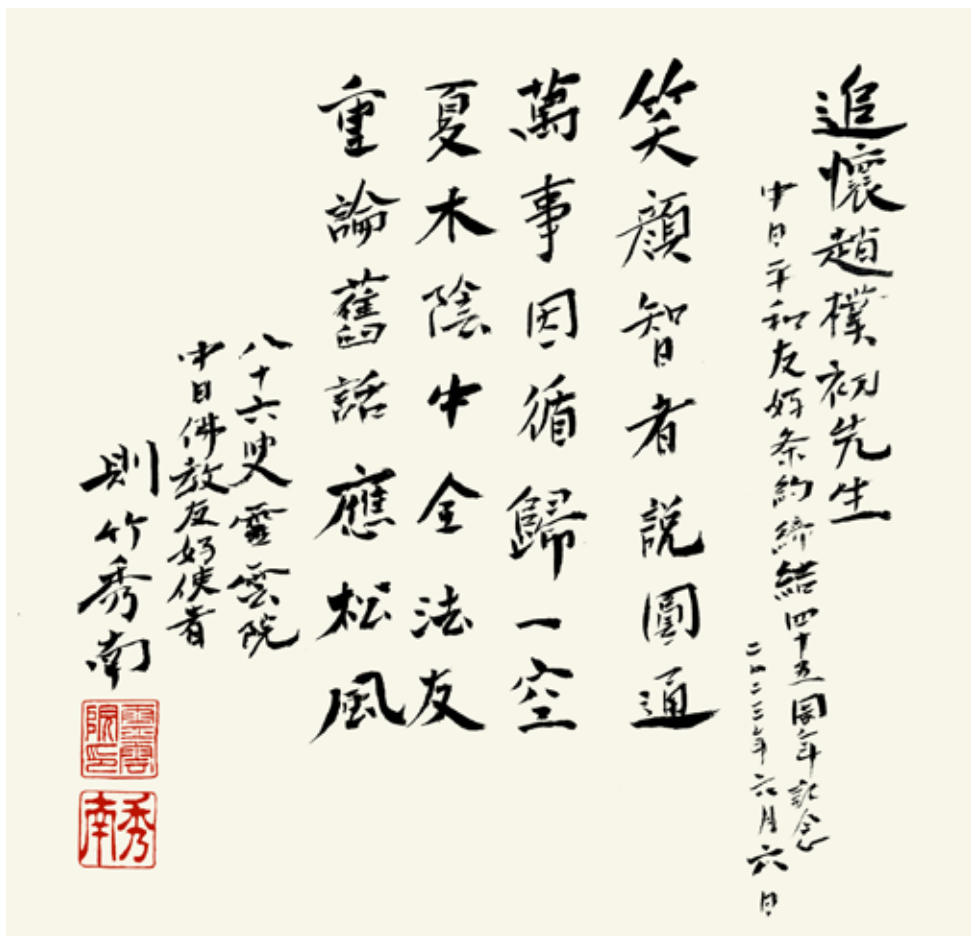 追懷趙樸初先生
中日平和友好条約締結四十五周年記念
二〇二三年六月六日
笑顔智者說圓通
萬事因循歸一空
夏木陰中全法友
重論舊話應松風
八十六叟靈雲院
中日佛教友好使者
則竹秀南
靈雲院印
秀南